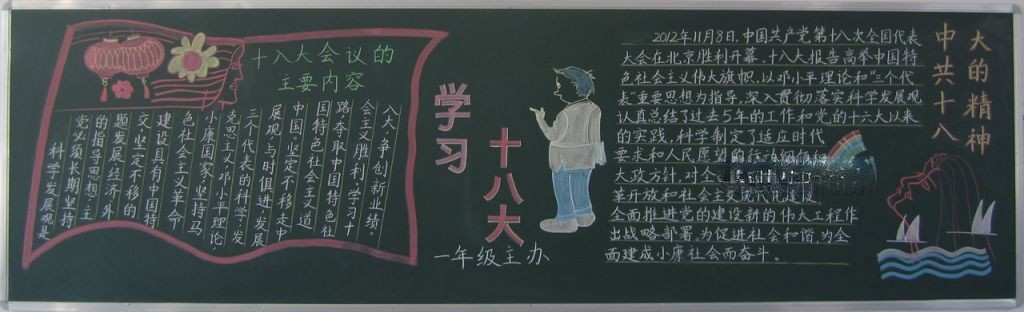 十八大会议的
主要内容
科学发展观是
党必须长期坚持
的指导思想.主
题发展经济.外
交,坚定不移的
建设具有中国特
色社会主义革命
小康国家.坚持马
克思主义.邓小平理论
三个代表的科学.发
展观.与时俱进.发展
中国.坚定不移走中
国特色社会主义道
路.夺取中国特色社
会主义胜利.学习十
八大.争创新业绩。
学习
十八大
一年级主办
2012年11月8日,中国共产党第十八次全国代表
大会在北京胜利开幕,十八大报告高举中国特
色社会主义伟大旗帜,以邓小平理论和"三个代
表"重要思想为指导,深入贯彻落实科学发展观
认真总结了过去5年的工作和党的十六大以来
的实践,科学制定了适应时代
要求和人民愿望的行动
大政方针,对全
革开放和社会主义现代化建设,
全面推进党的建设新的伟大工程作
出战略部署,为促进社会和谐,为全
面建成小康社会而奋斗。
中共十八
大的精神